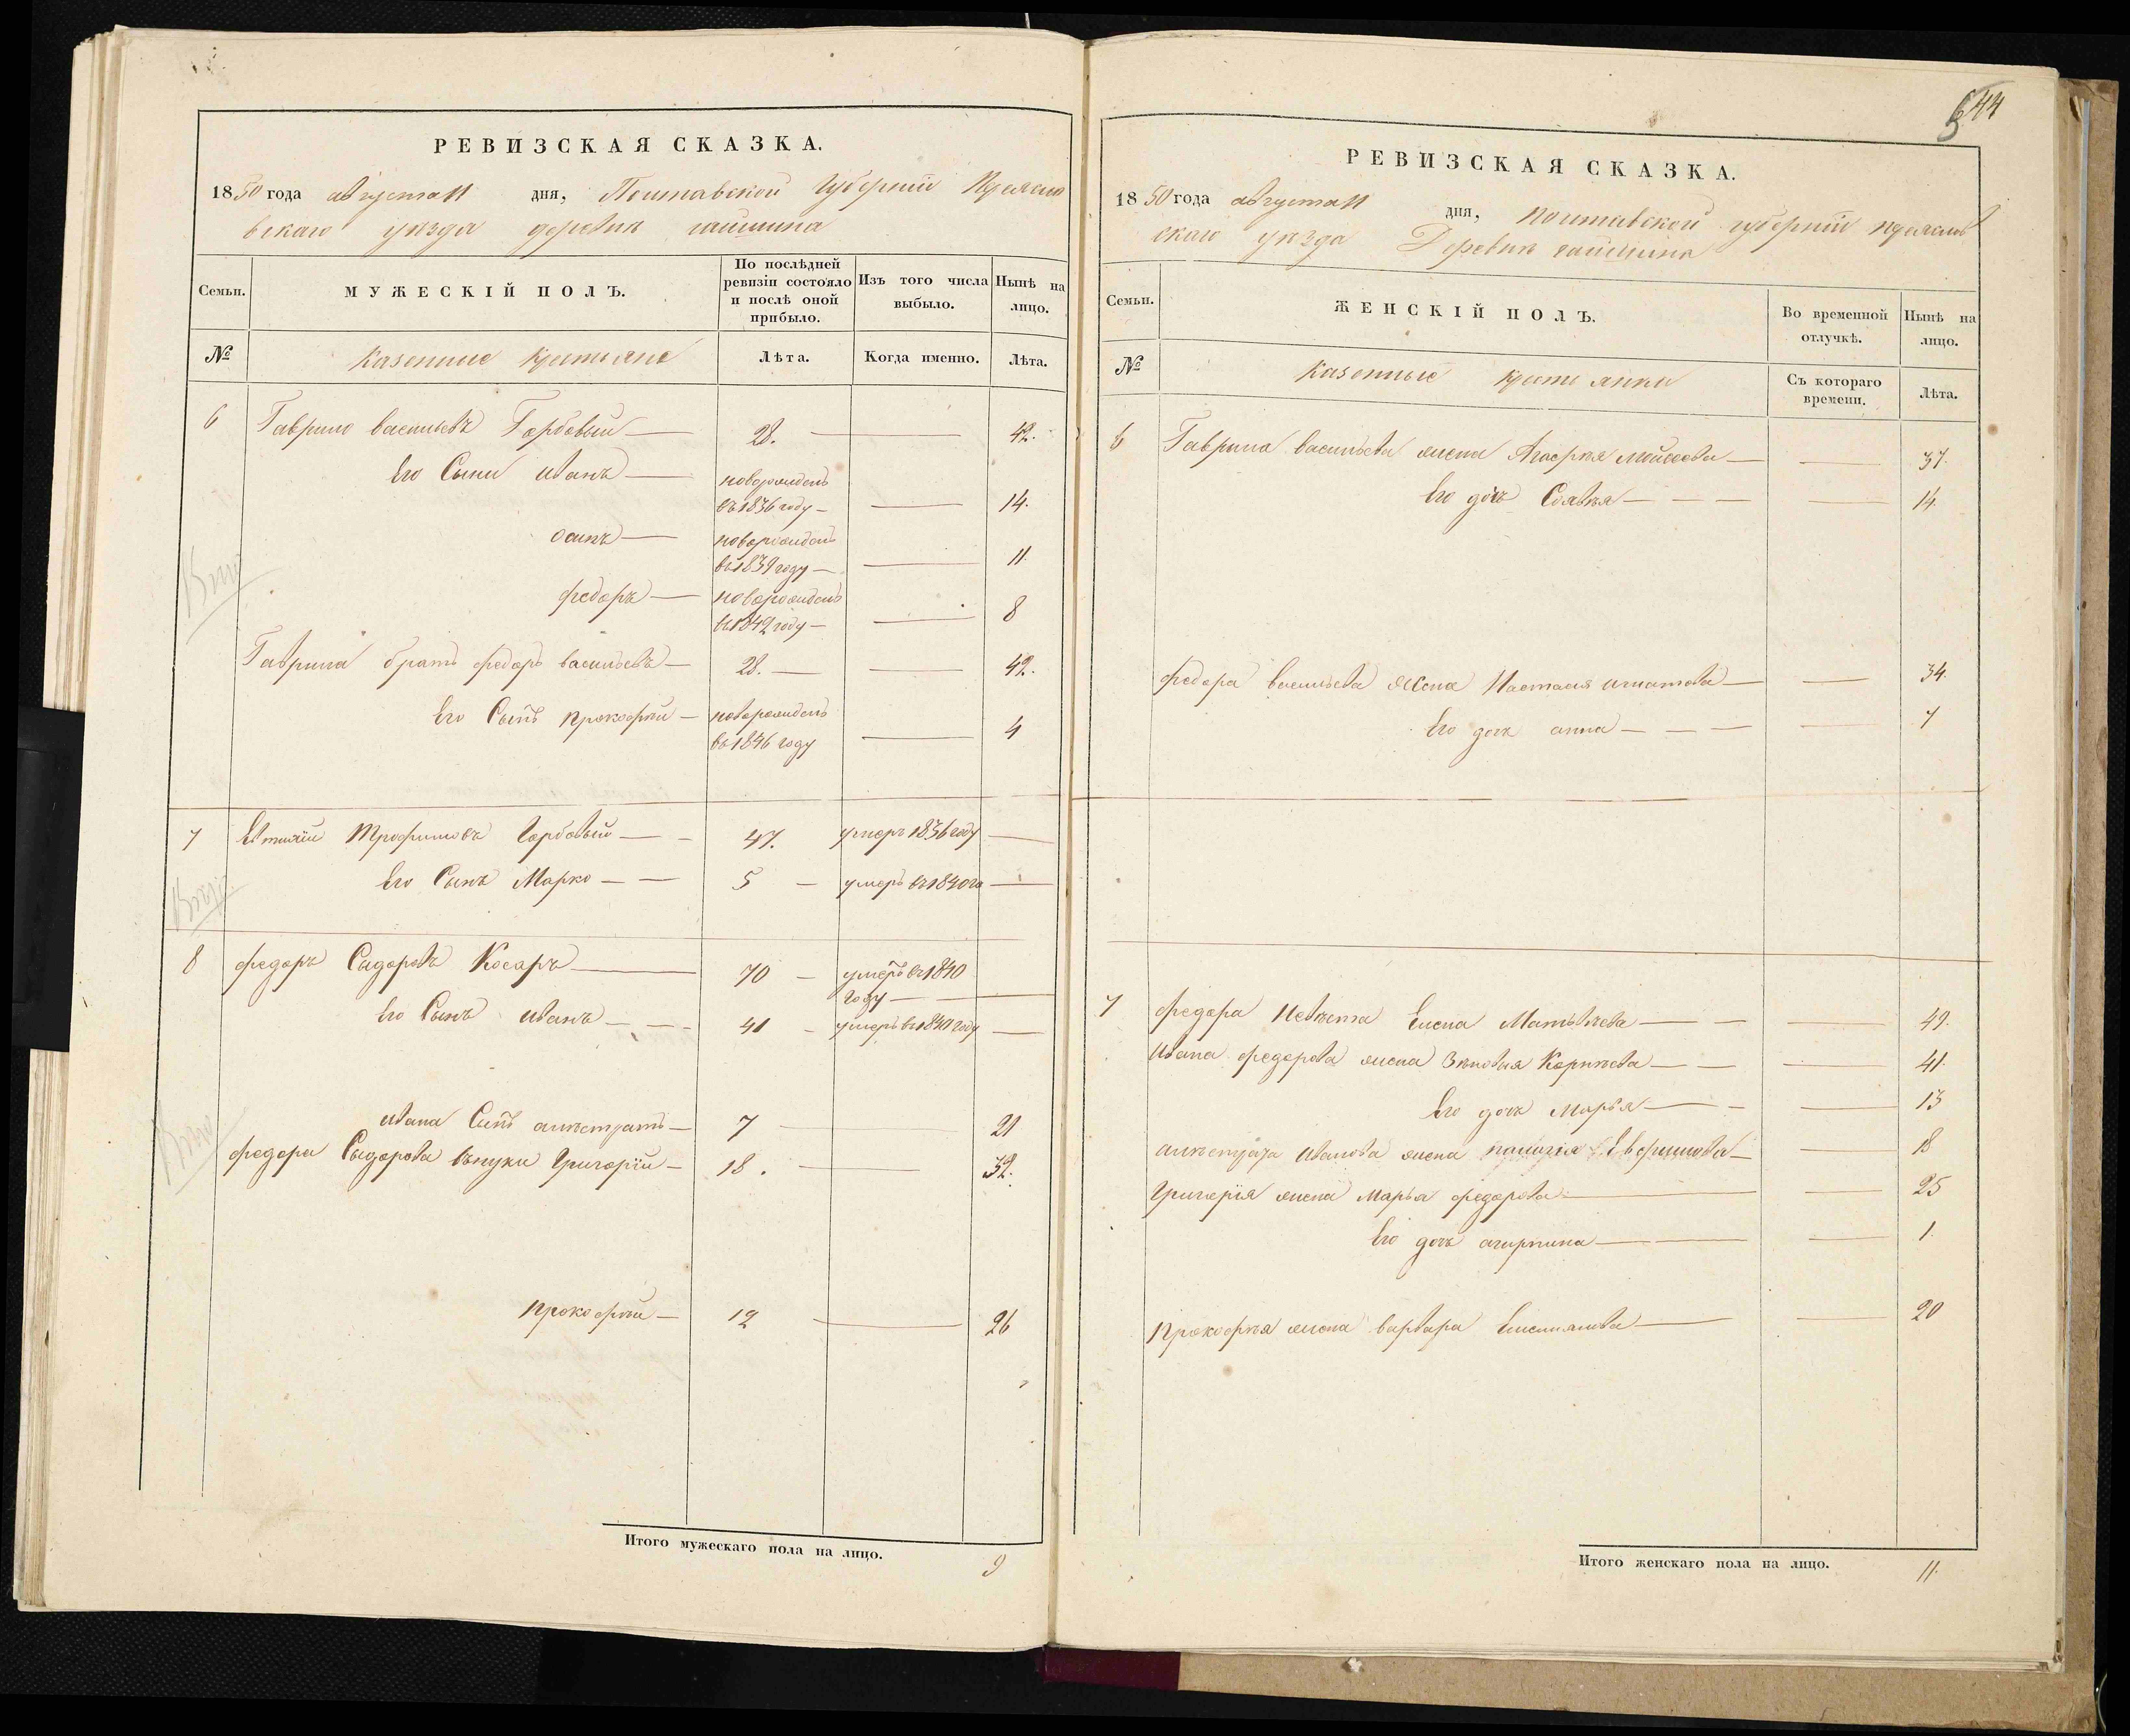 РЕВИЗСКАЯ СКАЗКА.
1850 года августа 11 дня, Полтавской Губернии Переясла
вскаго уезда деревни гайшина
Семьи.
МУЖЕСКІЙ ПОЛЪ.
По послѣдней ревизіи состояло и послѣ оной прибыло.
Изъ того числа выбыло.
Нынѣ на лицо.
№
Казенные Крестьяне
Лѣта.
Когда именно.
Лѣта.
6 Гаврило васильевъ Горбовый 28. 42.
Его Сыни иванъ новорожденъ въ 1836 году 14.
осипъ новорожденъ въ 1839 году 11
федоръ новорожденъ въ 1842 году 8
Гаврила братъ федоръ васильевъ 28. 42.
Его Сынъ прокофий новорожденъ въ 1846 году 4
7 Евтихій Трофимовъ Горбовый 47. умеръ 1836 году
Его Сынъ Марко 5 умеръ въ 1840 го
8 федоръ Сидоровъ Косаръ 70 умеръ въ 1840 году
Его Сынъ иванъ 41 умеръ въ 1840 году
ивана Сынъ 7 21
федора Сидорова внуки Григорій 18. 32.
прокофий 12 26
Итого мужескаго пола на лицо. 9
44
РЕВИЗСКАЯ СКАЗКА.
1850 года августа 11 дня, полтавской губерніи переяслав
скаго уезда Деревни гайшина
Семьи.
ЖЕНСКІЙ ПОЛЪ.
Во временной отлучкѣ.
Нынѣ на лицо.
№
Казенные крестьянки
Съ котораго времени.
Лѣта.
6 Гаврила васильева жена Агафия мойсеева 37.
Его дочъ Софвия 14.
федора васильева жена Настасия игнатова 34.
Его дочъ анна 7
7 федора Невѣста Елена Матвѣева 49.
ивана федорова жена Зеновия Корнеева 41.
Его дочъ Марья 13
ивановa жена Евфимова 18
Григорія жена марья федорова 25
Его дочъ агирпина 1.
прокофия жена варвара 20
Итого женскаго пола на лицо. 11.